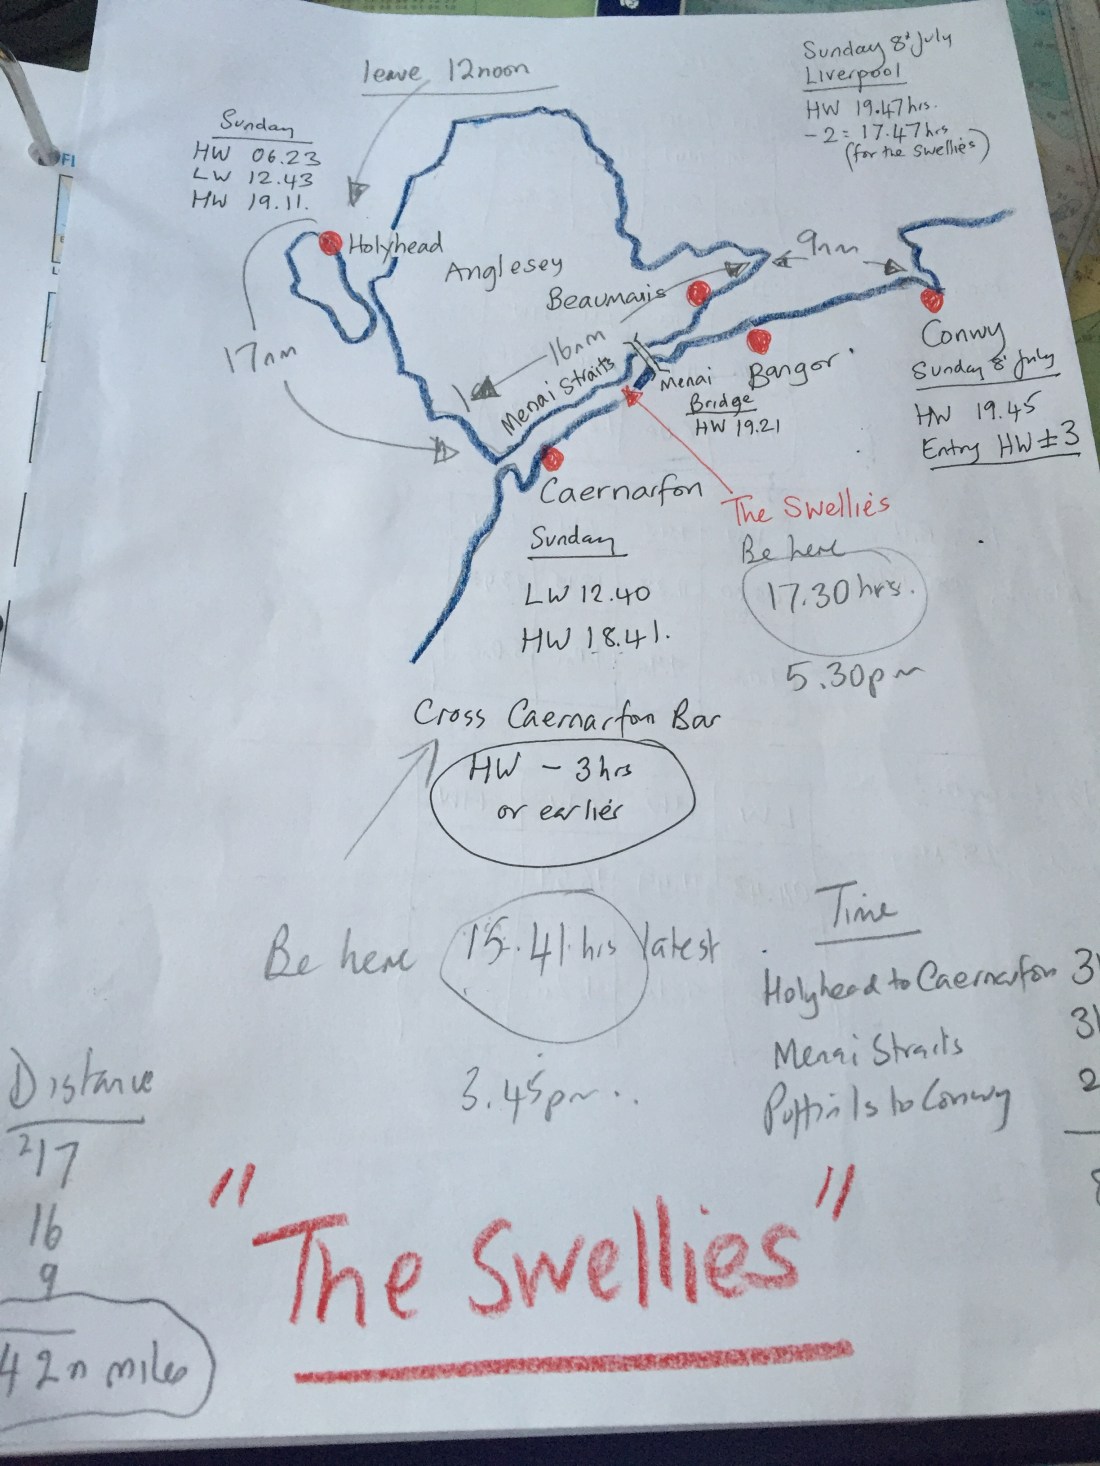 leave 12noon
Sunday 8' July
Liverpool
HW 19.47hrs.
-2 = 17.47hrs
(for the Swellies)
Sunday
HW 06.23
LW 12.43
HW 19.11.
Holyhead
Anglesey
9nm
Beaumaris
17nm
16nm
Menai Straits
Menai
Bridge
HW 19.21
Bangor
Conwy
Sunday 8' July
HW 19.45
Entry HW ± 3
Caernarfon
Sunday
LW 12.40
HW 18.41.
The Swellies
Be here
17.30 hrs.
5.30pm
Cross Caernarfon Bar
HW - 3 hrs
or earlier
Be here 15.41 hrs latest
3.45pm..
Time
Holyhead to Caernarfon 3
Menai Straits 3
Puffin Is to Conwy 2
8
Distance
17
16
9
42n miles
"The Swellies"